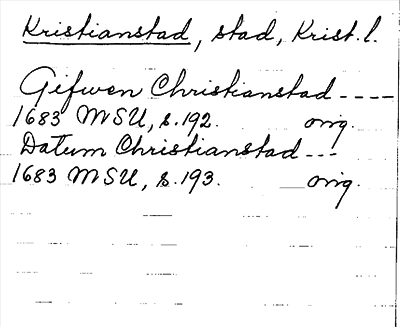 Kristianstad, stad, Krist. l.
Gifwen Christianstad ----
1683 MSU, s.192. orig.
Datum Christianstad ---
1683 MSU, s.193. orig.